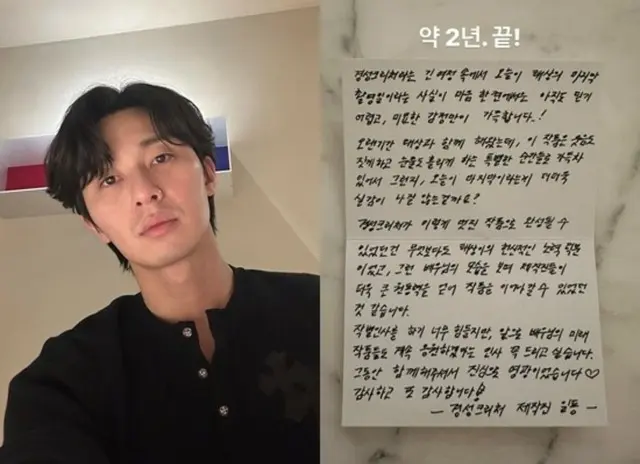 약 2년. 끝!
경성크리처라는 긴 여정 속에서 오늘이 태상의 마지막
촬영일이라는 사실이 마음 한 켠에서는 아직도 믿기
어렵고, 미묘한 감정만이 가득합니다.!
오랜기간 태상과 함께 해왔는데, 이 작품은 웃음도
짓게하고 눈물도 흘리게 하는 특별한 순간들로 가득차
있어서 그런지, 오늘이 마지막이라는게 더더욱
실감이 나질 않는걸까요?
경성크리처가 이렇게 멋진 작품으로 완성될 수
있었던건 무엇보다도 태상이의 헌신적인 노력 덕분
이었고, 그런 배우님의 모습을 보며 제작진들이
더욱 큰 원동력을 얻어 작품을 이어나갈 수 있었던
것 같습니다.
작별인사를 하기 너무 힘들지만, 앞으로 배우님의 미래
작품들도 계속 응원하겠다는 인사 꼭 드리고 싶습니다.
그동안 함께해주셔서 진심으로 영광이었습니다♡
감사하고 또 감사합니다!
- 경성크리처 제작진 일동 -